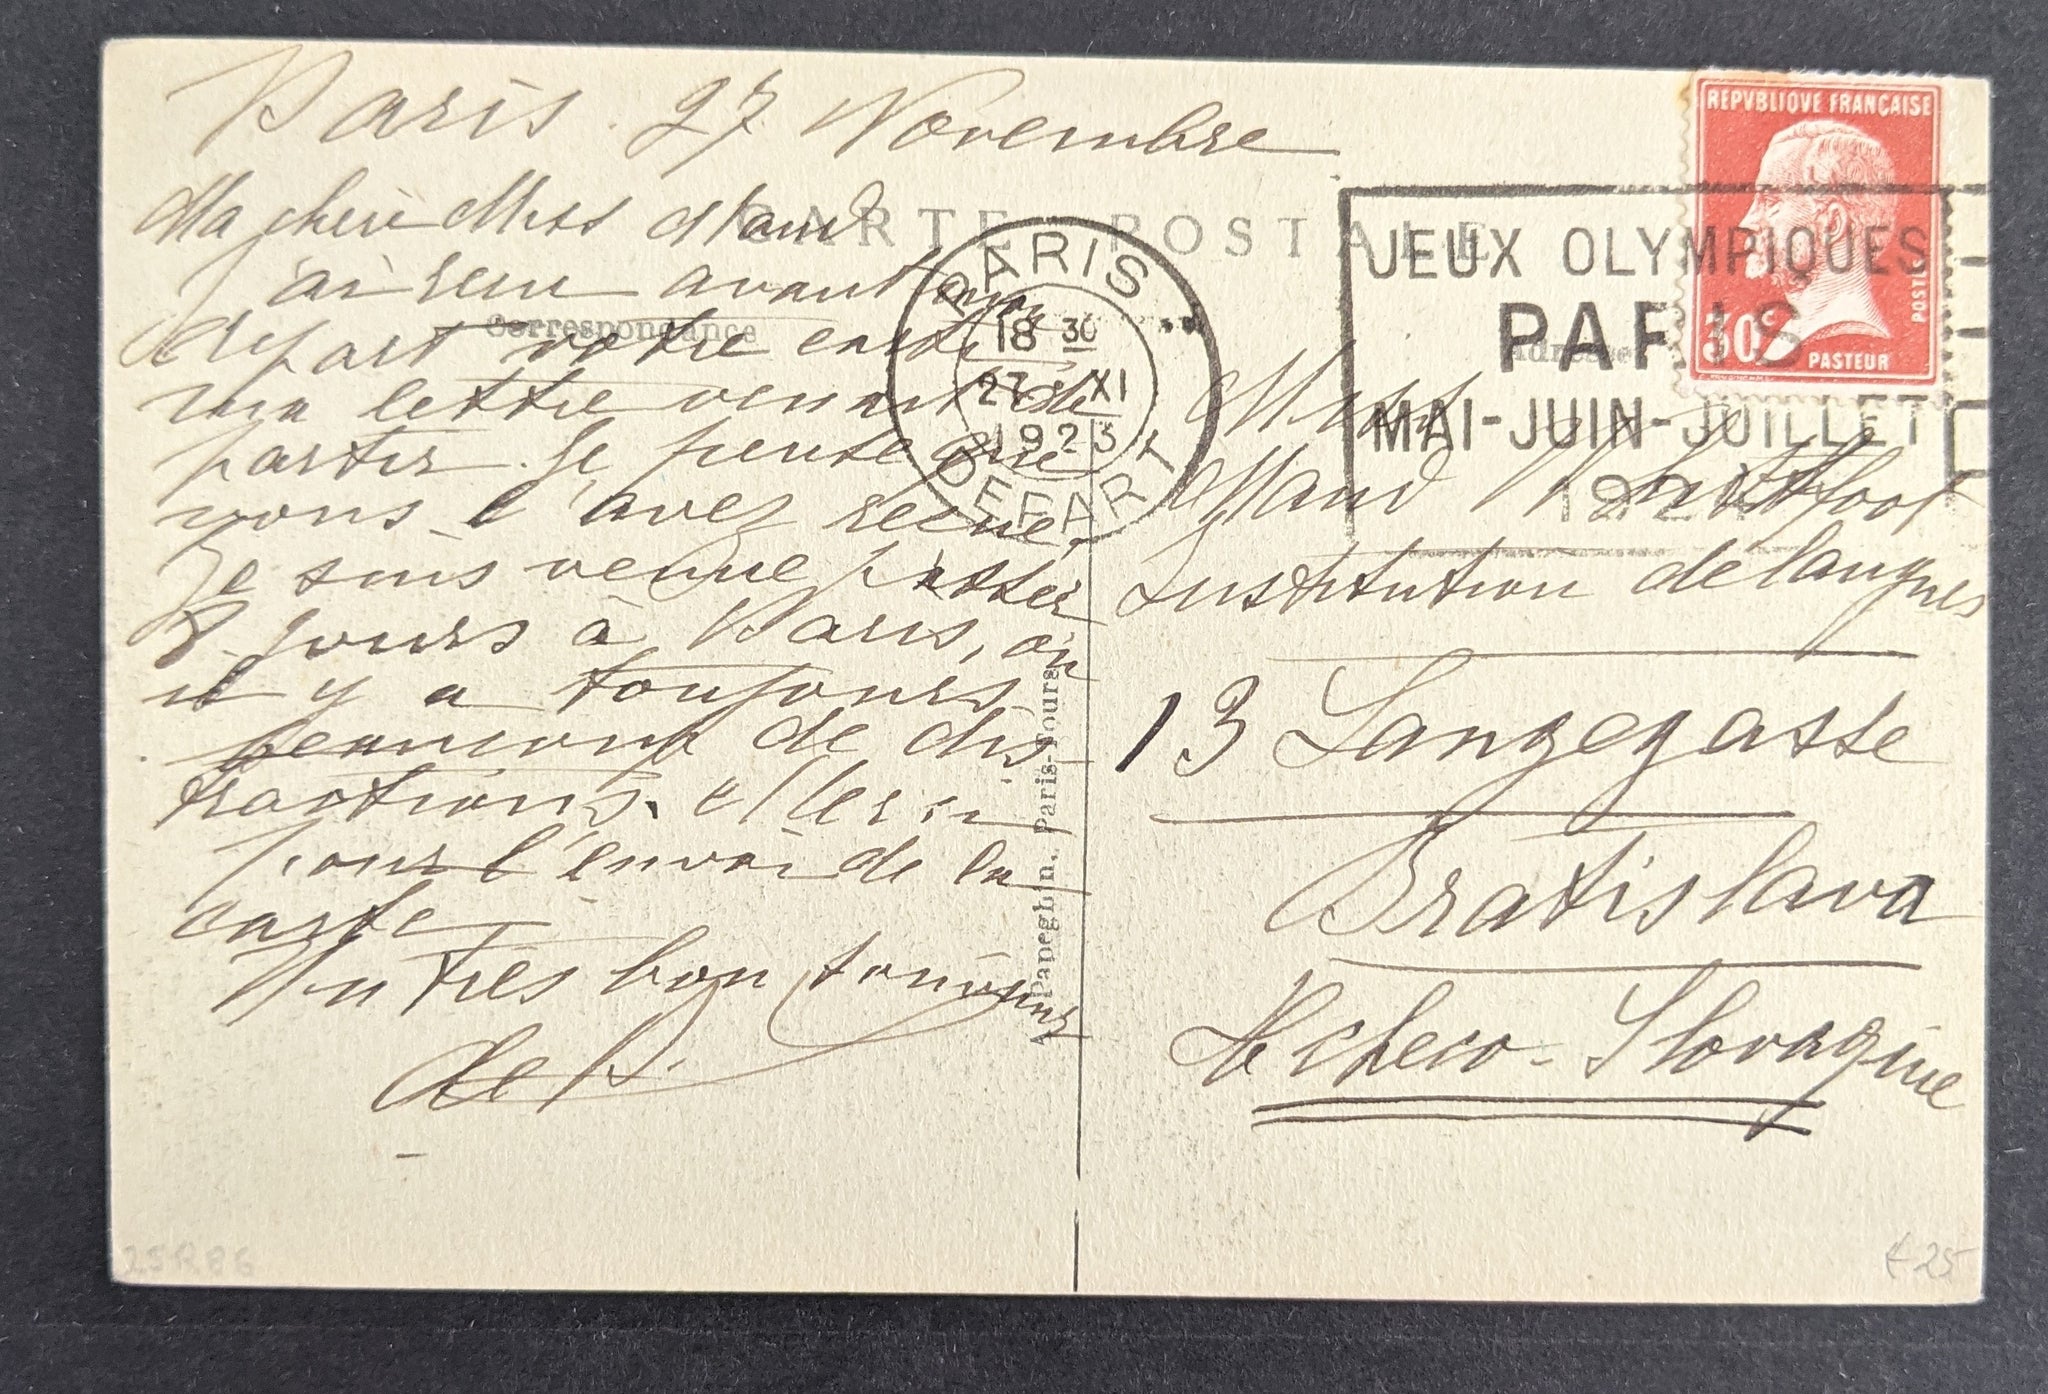 Paris 27 Novembre
Ma chère Miss Maud
J'ai reçu avant mon
départ votre carte
ma lettre venait de
partir. Je pense que
vous l'avez reçue.
Je suis venue passer
8 jours à Paris, où
il y a toujours
beaucoup de dis-
tractions. Merci
pour l'envoi de la
carte
Un très bon toujours
de
CARTE POSTALE
Correspondance
Adresse
PARIS
18 30
27 XI
1923
DEPART
JEUX OLYMPIQUES
PARIS
MAI-JUIN-JUILLET
1924
REPVBLIQVE FRANÇAISE
POSTES
30c
PASTEUR
Miss
Maud Whittfoot
Institution de langues
13 Langegasse
Bratislava
Tchéco-Slovaquie
A. Papeghin, Paris-Tours
25R86
€25